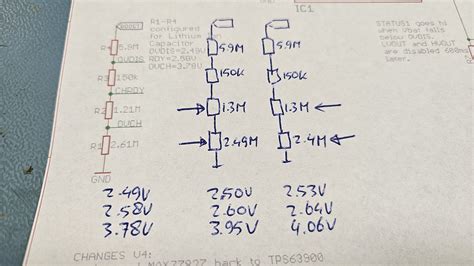 IC1
R1-R4
configured
for Lithium Ion
Capacitor
OVDIS=2.49V
RDY=2.58V
OVCH=3.78V
STATUS1 goes to
when Vbat falls
below OVDIS.
LVOUT and HVOUT
are disabled 600ms
later.
R4 5.9M
OVDIS
R3 150k
CHRDY
R2 1.21M
OVCH
R1 2.61M
GND
5.9M
150K
1.3M
2.49M
5.9M
150K
1.3M
2.4M
2.49V 2.50V 2.53V
2.58V 2.60V 2.64V
3.78V 3.95V 4.06V
CHANGES V4:
back to TPS63900